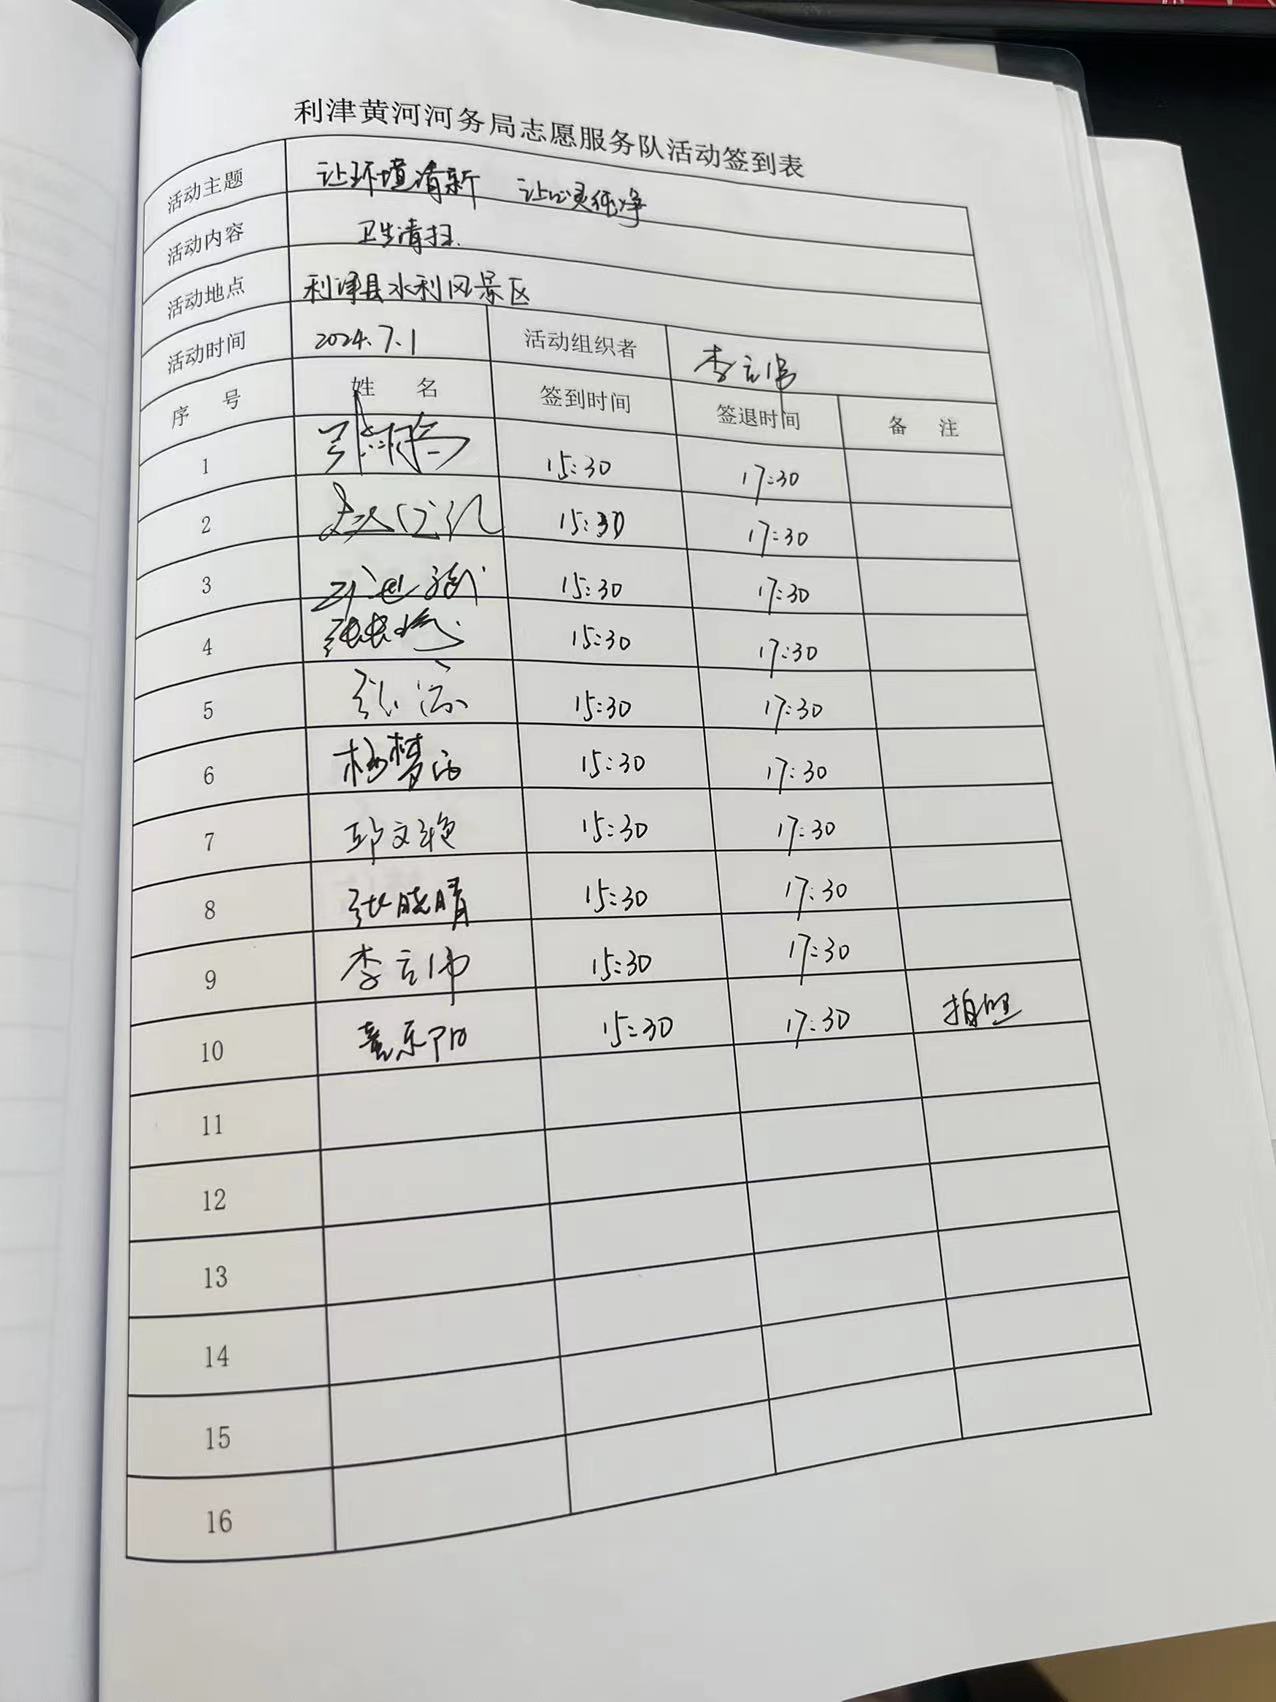 利津黄河河务局志愿服务队活动签到表
活动主题 让环境清新 让心灵纯净
活动内容 卫生清扫
活动地点 利津县水利风景区
活动时间 2024.7.1 活动组织者 李立伟
序 号 姓 名 签到时间 签退时间 备 注
1 15:30 17:30
2 15:30 17:30
3 15:30 17:30
4 15:30 17:30
5 15:30 17:30
6 杨梦雨 15:30 17:30
7 邱文艳 15:30 17:30
8 张晓晴 15:30 17:30
9 李立伟 15:30 17:30
10 15:30 17:30 拍照
11
12
13
14
15
16